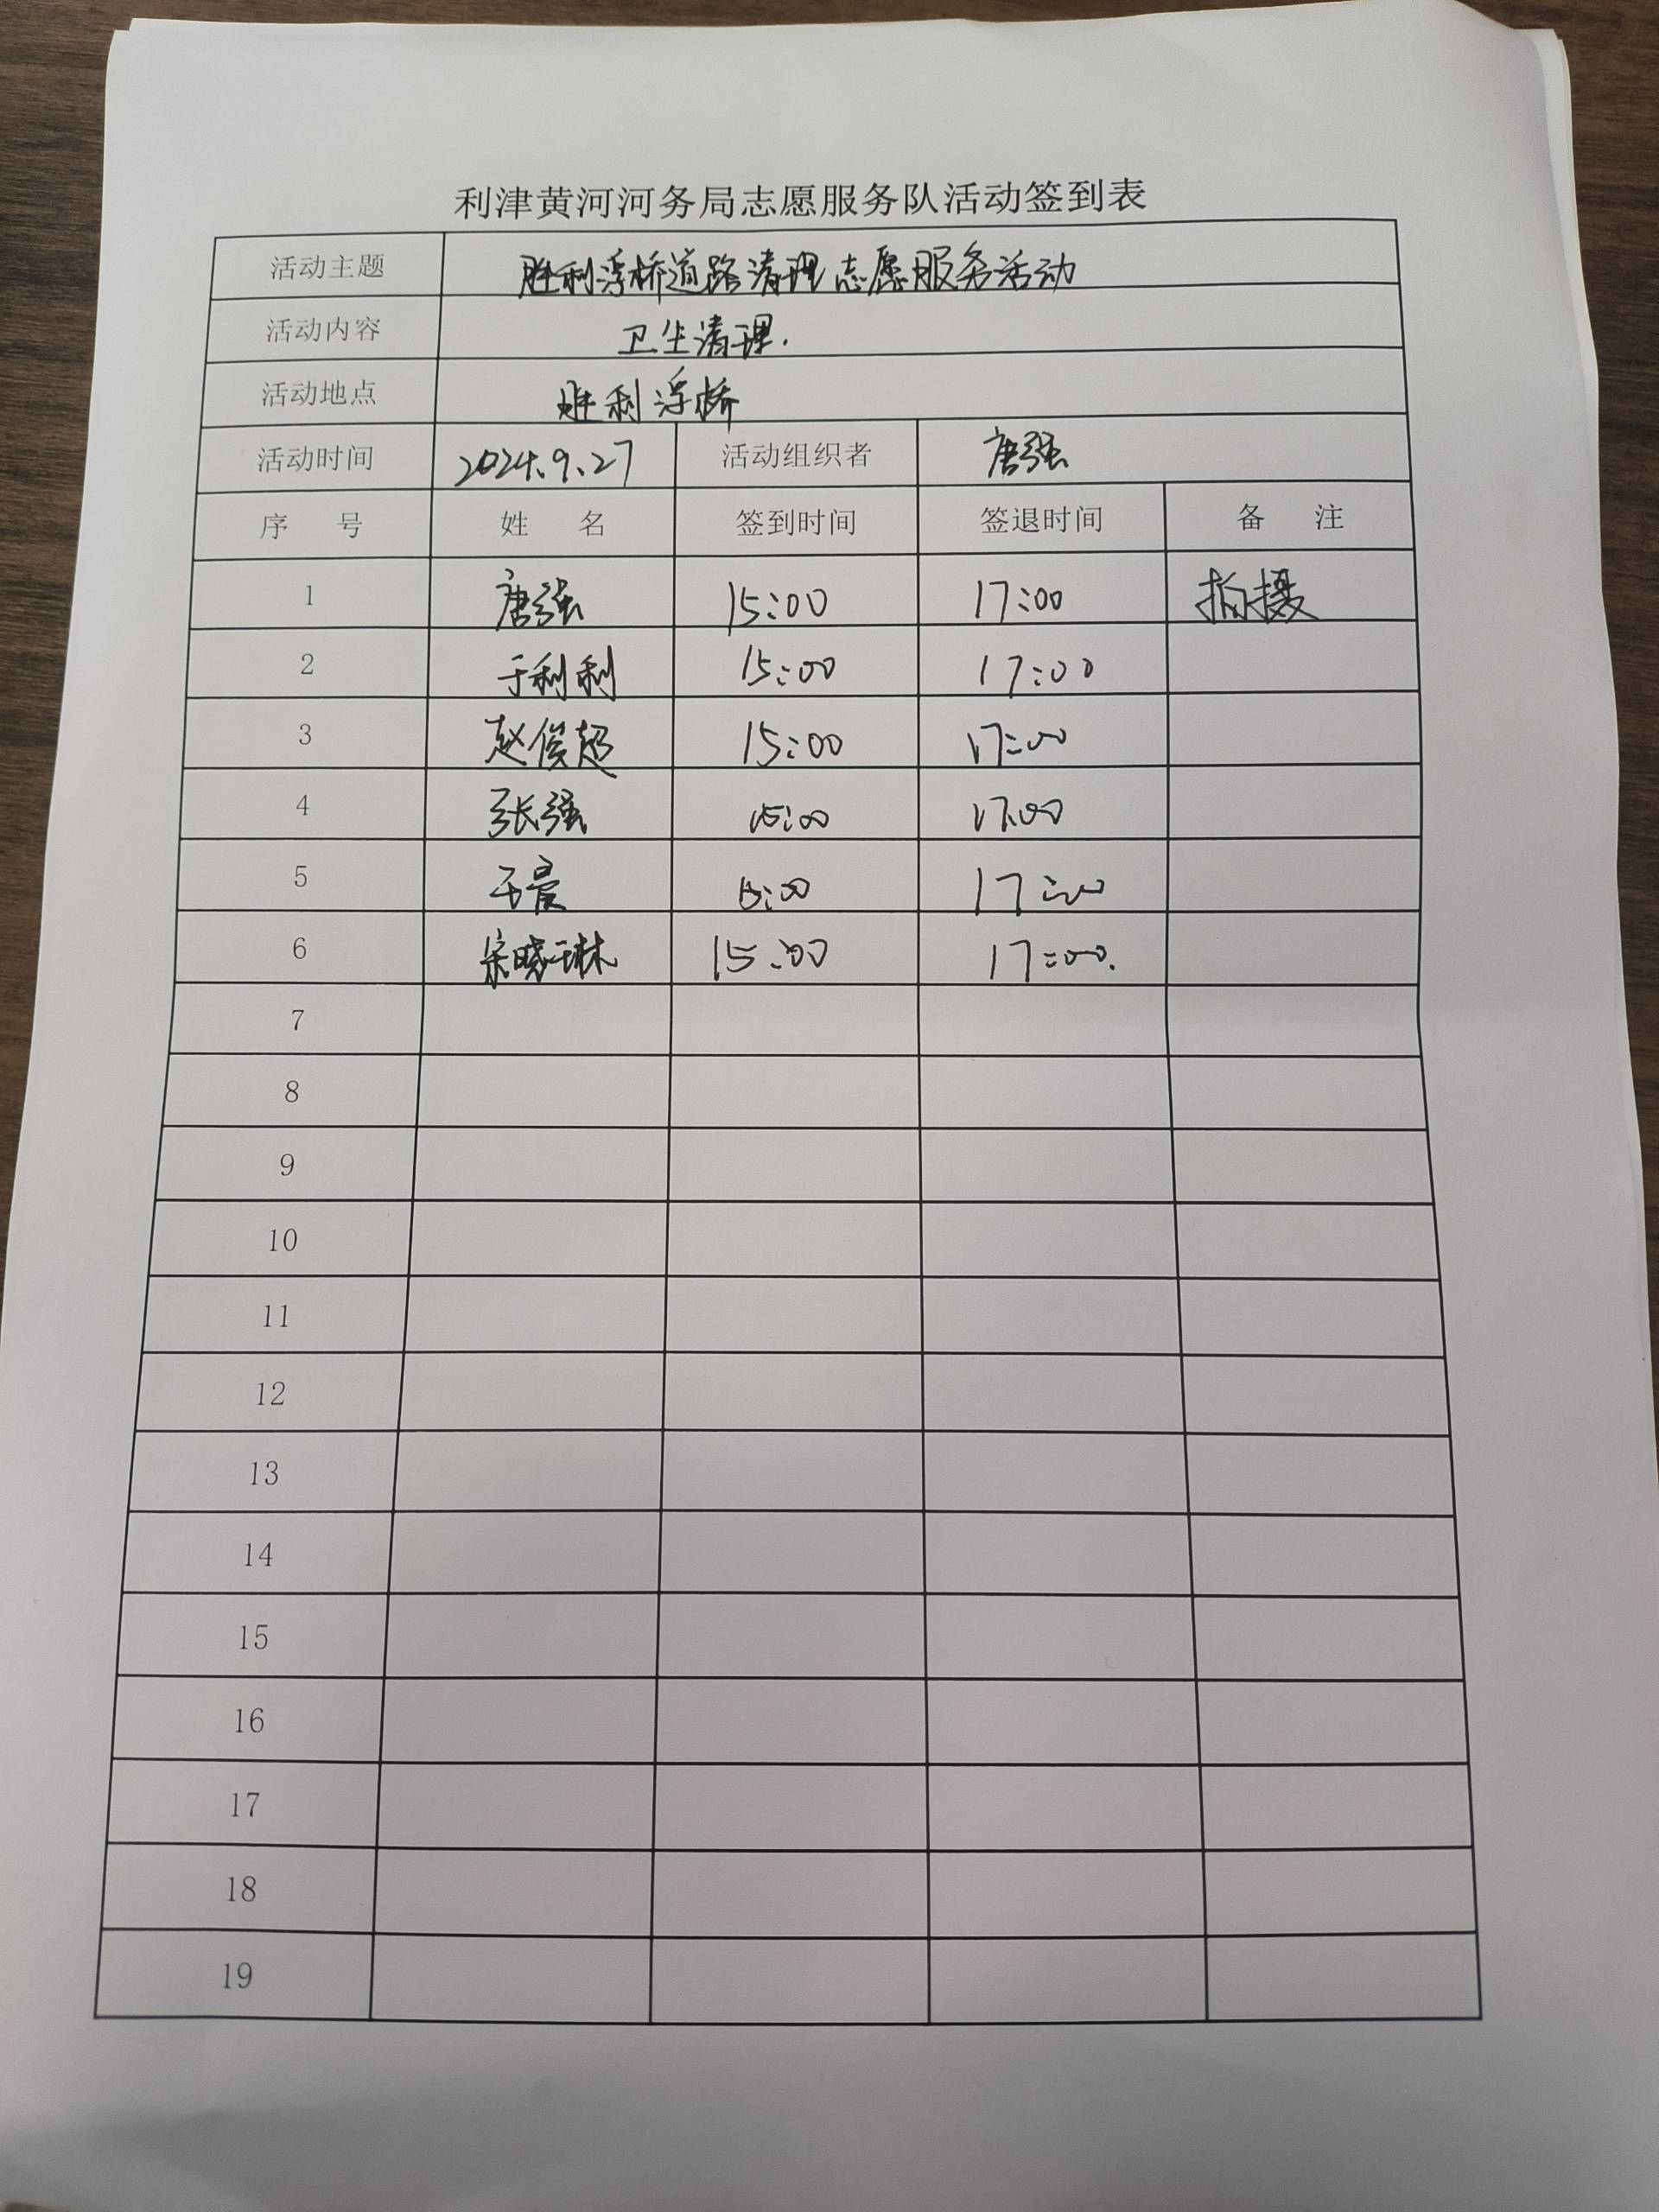 利津黄河河务局志愿服务队活动签到表
活动主题 胜利浮桥道路清理志愿服务活动
活动内容 卫生清理.
活动地点 胜利浮桥
活动时间 2024.9.27 活动组织者 唐强
序 号 姓 名 签到时间 签退时间 备 注
1 唐强 15:00 17:00 拍摄
2 于利利 15:00 17:00
3 赵俊超 15:00 17:00
4 张强 15:00 17:00
5 15:00 17:00
6 宋晓琳 15:00 17:00.
7
8
9
10
11
12
13
14
15
16
17
18
19